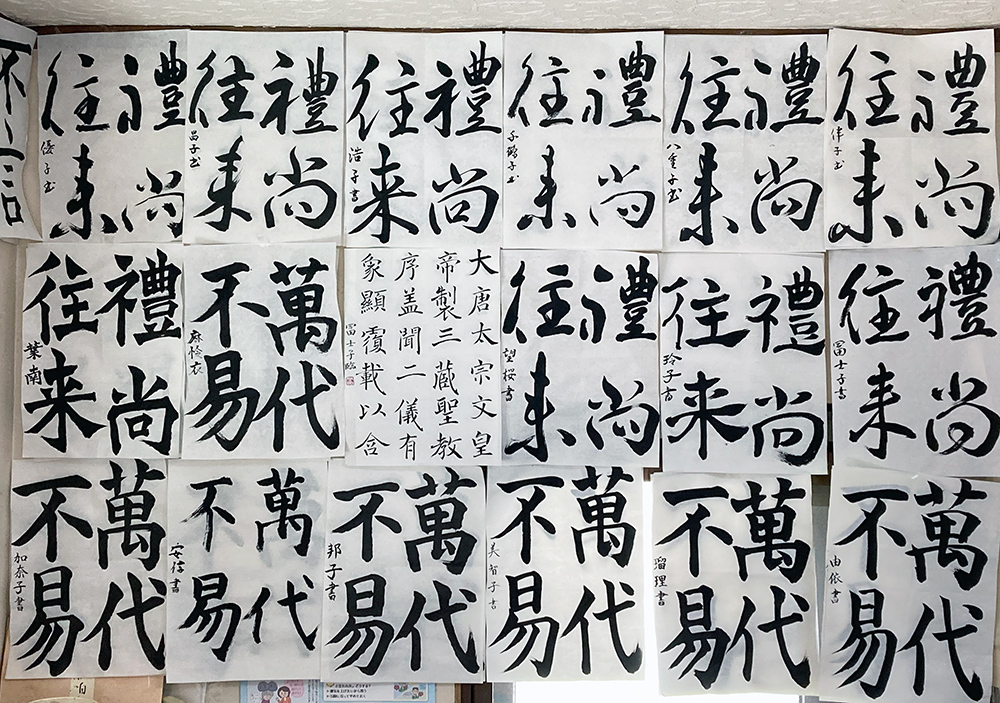 禮尚
往来
律子書
禮尚
往来
八重子書
禮尚
往来
千鶴子書
禮尚
往来
浩子書
禮尚
往来
昌子書
禮尚
往来
優子書
禮尚
往来
冨士子書
禮尚
往来
玲子書
禮尚
往来
望桜書
大唐太宗文皇
帝製三蔵聖教
序盖聞二儀有
象顯覆載以含
冨士子臨
萬代
不易
麻怜衣
禮尚
往来
葉南
萬代
不易
由依書
萬代
不易
瑠理書
萬代
不易
美智子書
萬代
不易
邦子書
萬代
不易
安信書
萬代
不易
加奈子書